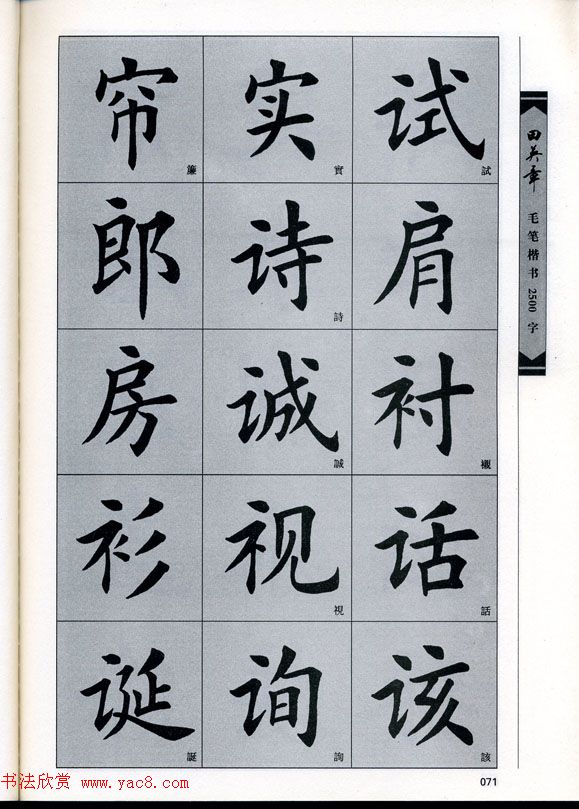 帘 簾 实 實 试 試
郎 诗 詩 肩
房 诚 誠 衬 襯
衫 视 視 话 話
诞 誕 询 詢 该 該
田英章 毛笔楷书2500字
071
书法欣赏 www.yac8.com